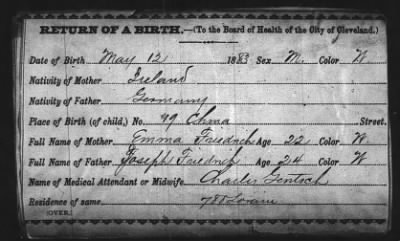 RETURN OF A BIRTH.—(To the Board of Health of the City of Cleveland.)
Date of Birth May 12 1883 Sex M. Color W.
Nativity of Mother Ireland
Nativity of Father Germany
Place of Birth (of child,) No. 49 Street.
Full Name of Mother Emma Friedrich Age 22 Color W.
Full Name of Father Joseph Friedrich Age 24 Color W
Name of Medical Attendant or Midwife Charles Gentsch
Residence of same Lorain
(OVER.)